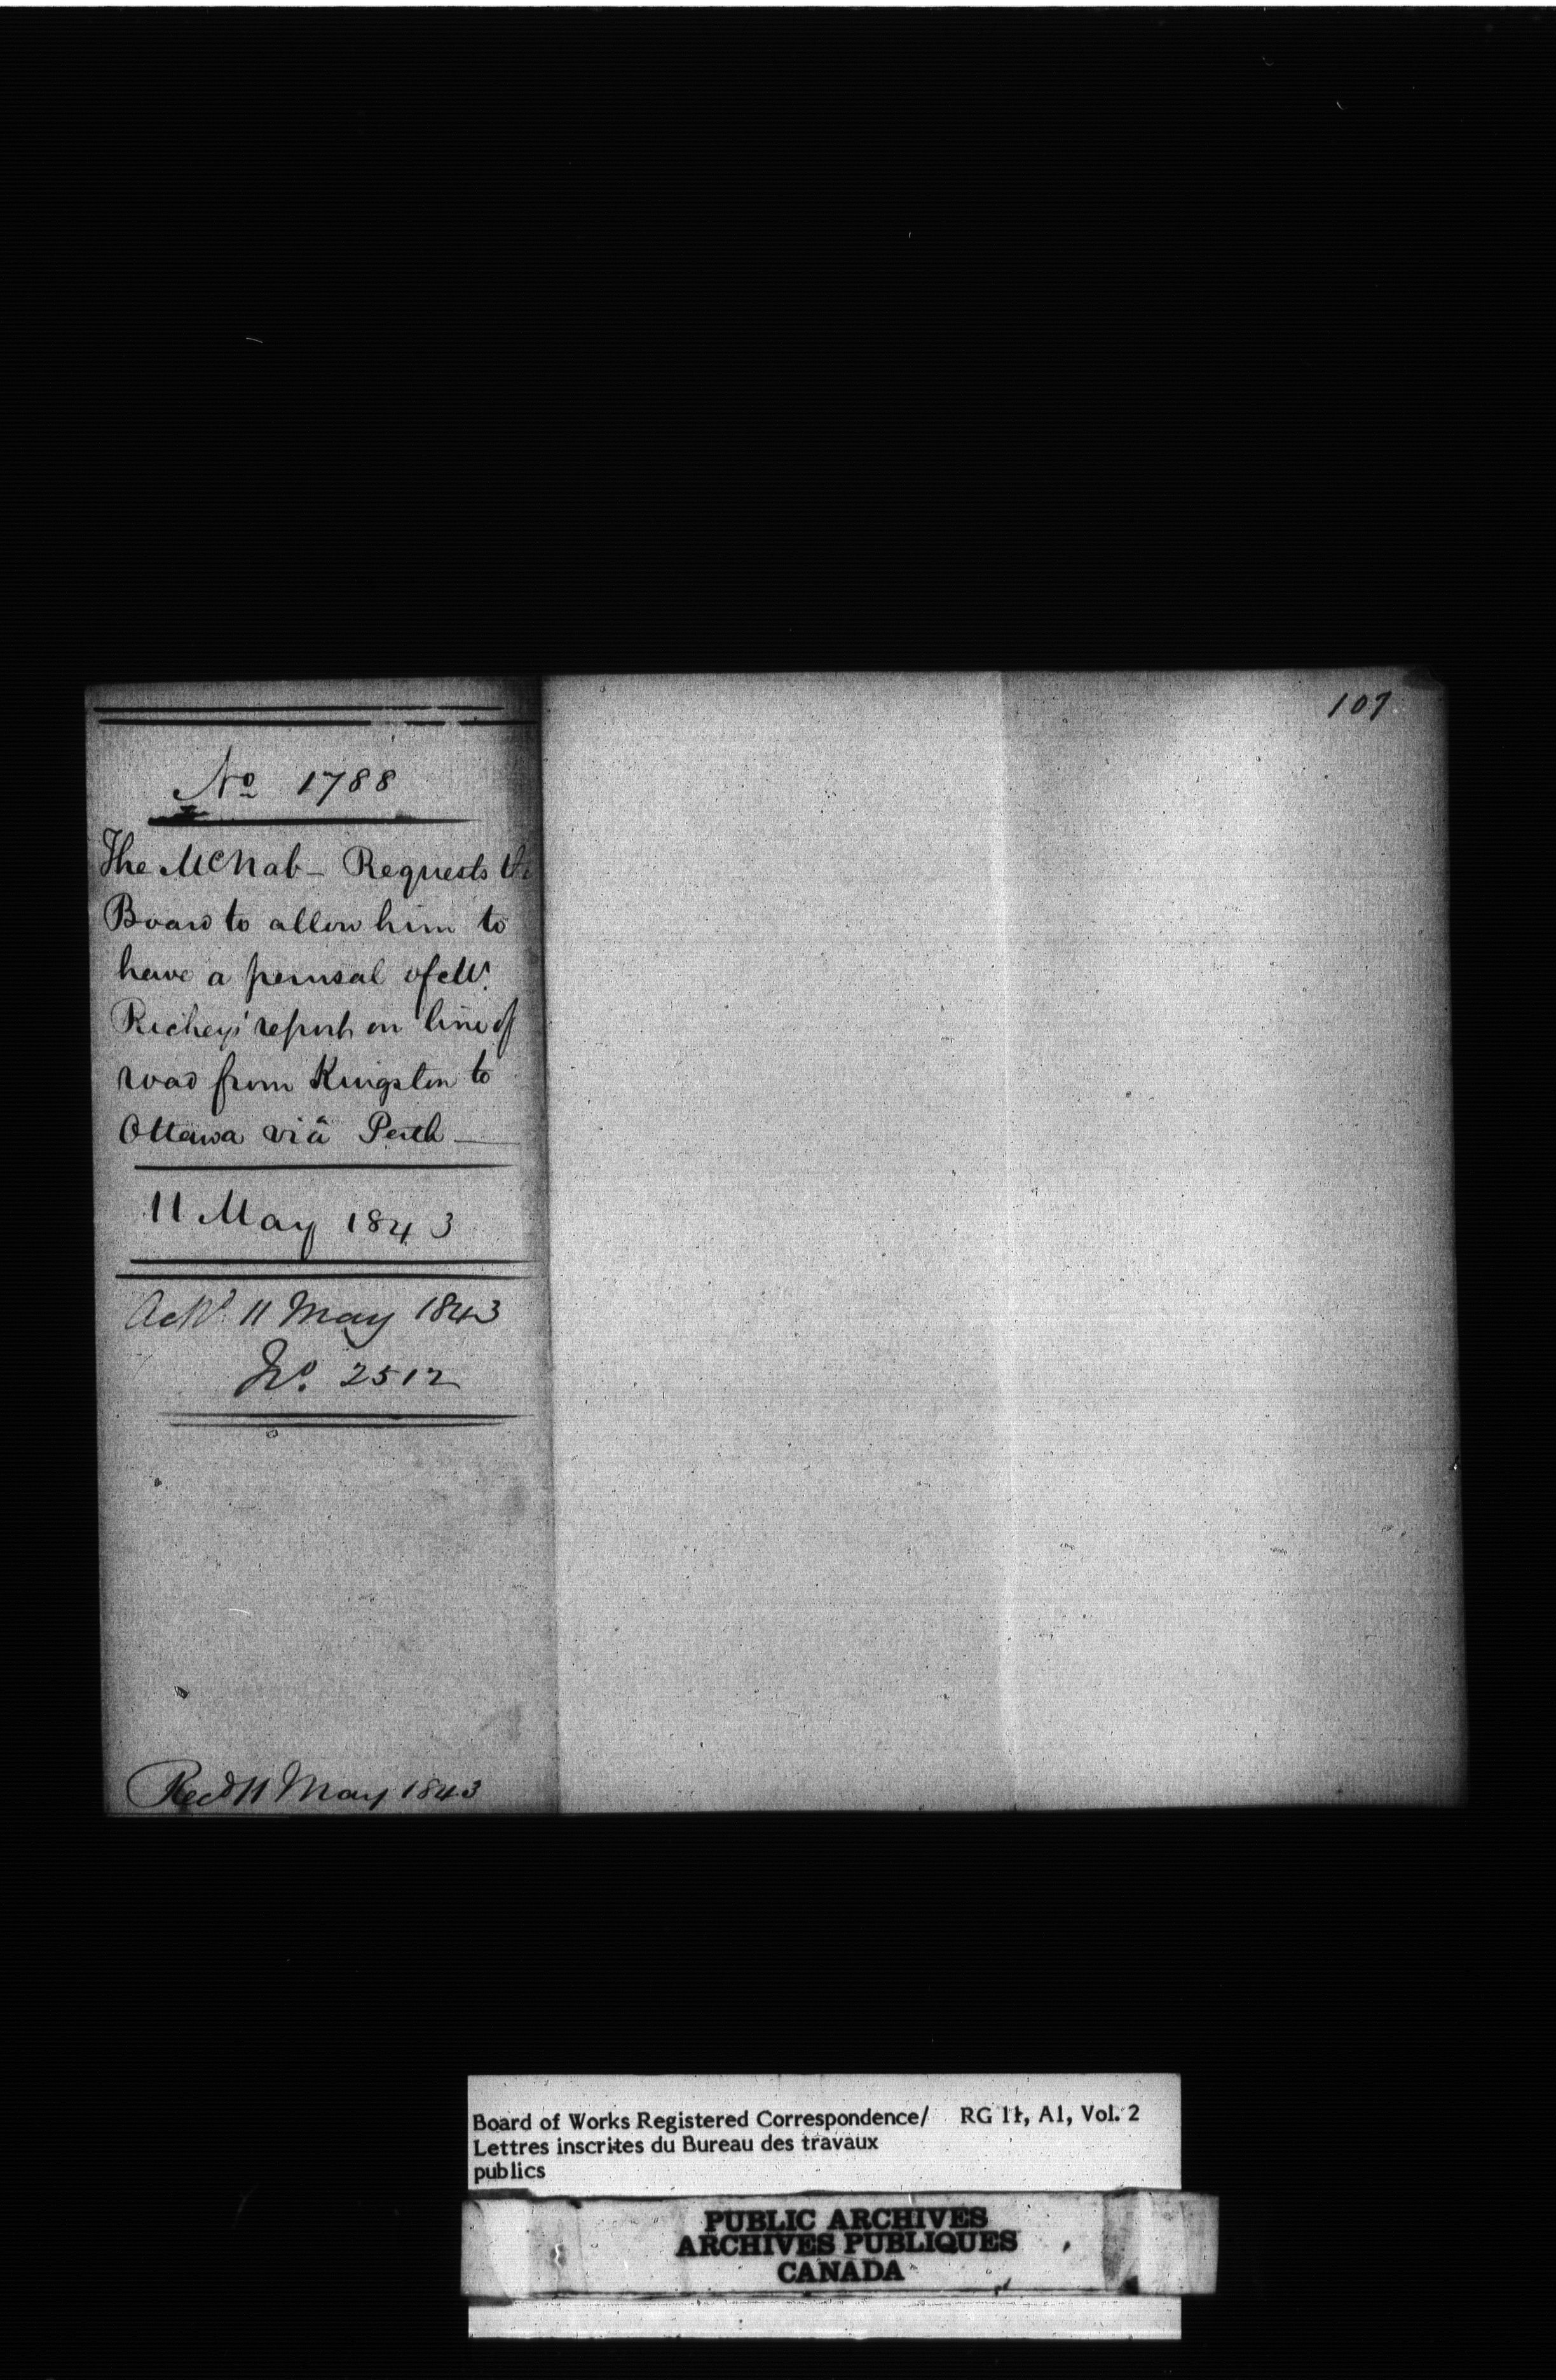 107
No 1788
The McNab - Requests the
Board to allow him to
have a perusal of Mr.
Richeys' report on line of
road from Kingston to
Ottawa viâ Perth
11 May 1843
Ackd. 11 May 1843
No. 2512
Recd 11 May 1843
Board of Works Registered Correspondence/ RG 11, A1, Vol. 2
Lettres inscrites du Bureau des travaux
publics
PUBLIC ARCHIVES
ARCHIVES PUBLIQUES
CANADA